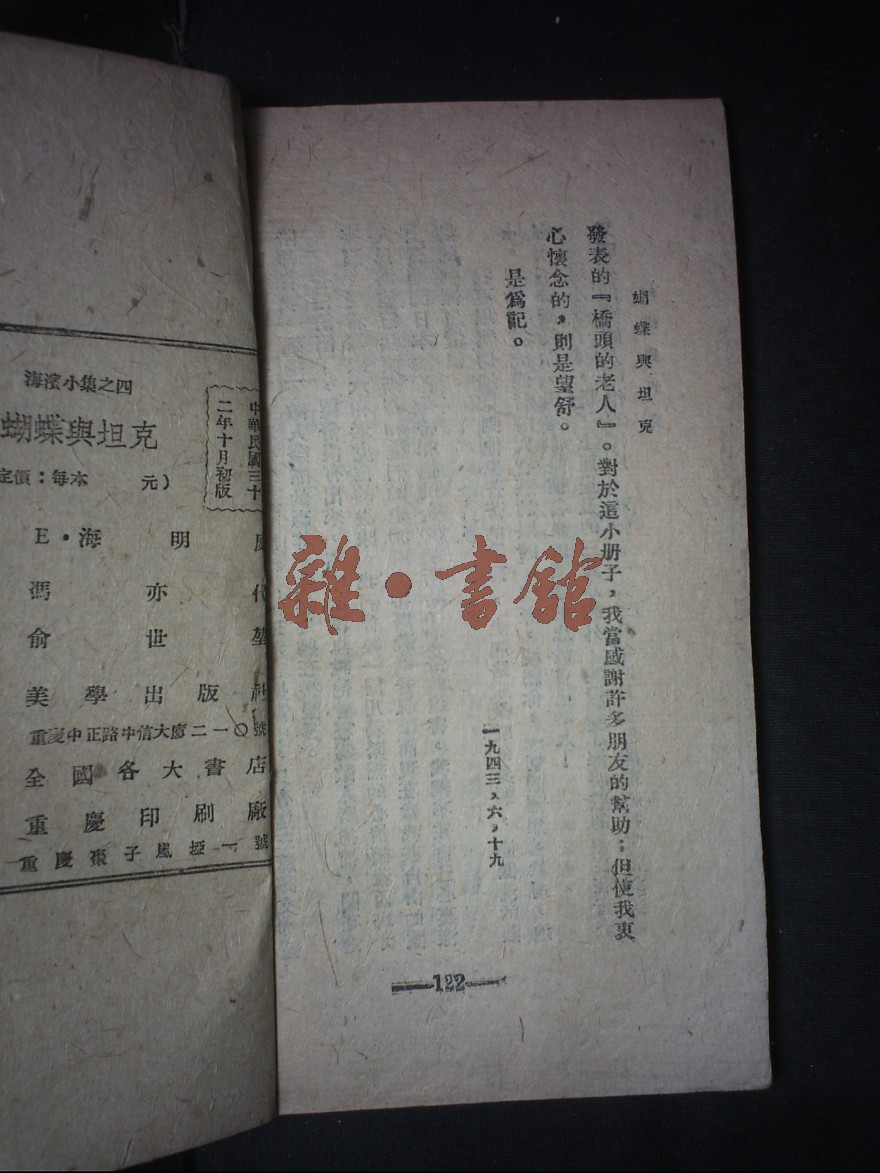 蝴蝶與坦克
發表的『橋頭的老人』。對於這小册子，我當感謝許多朋友的幫助；但使我衷
心懷念的，則是望舒。
是爲記。
一九四三，六，十九
122
中華民國三十
二年十月初版
海濱小集之四
蝴蝶與坦克
定價：每本 元）
E·海明
馮亦代
俞世堃
美學出版社
重慶中正路中信大廈二一〇號
全國各大書店
重慶印刷廠
重慶棗子嵐埡一號
雜·書舘